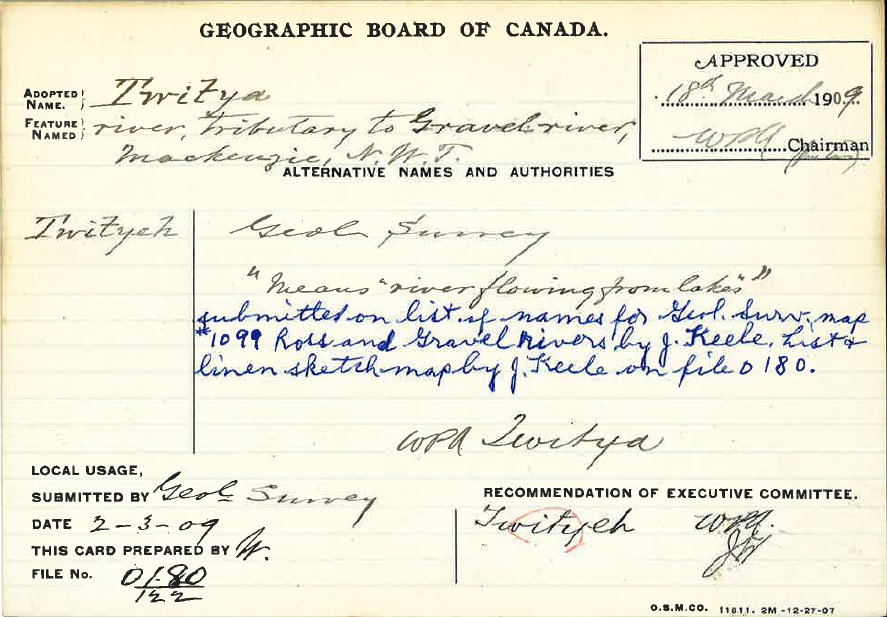 GEOGRAPHIC BOARD OF CANADA.
APPROVED
18th March 1909
WPA Chairman
ADOPTED NAME. } Twitya
FEATURE NAMED } river, tributary to Gravel river,
Mackenzie, N.W.T.
ALTERNATIVE NAMES AND AUTHORITIES
Twityeh Geol Survey
"Means "river flowing from lakes""
submitted on list of names for Geol. Surv. map
#1099 Ross and Gravel Rivers by J. Keele. List &
linen sketch-map by J. Keele on file 0180.
WPA Twitya
LOCAL USAGE,
SUBMITTED BY Geol Survey
DATE 2-3-09
THIS CARD PREPARED BY W.
FILE No. 0180
122
RECOMMENDATION OF EXECUTIVE COMMITTEE.
Twityeh WPA.
O.S.M.CO. 11811. 2M-12-27-07